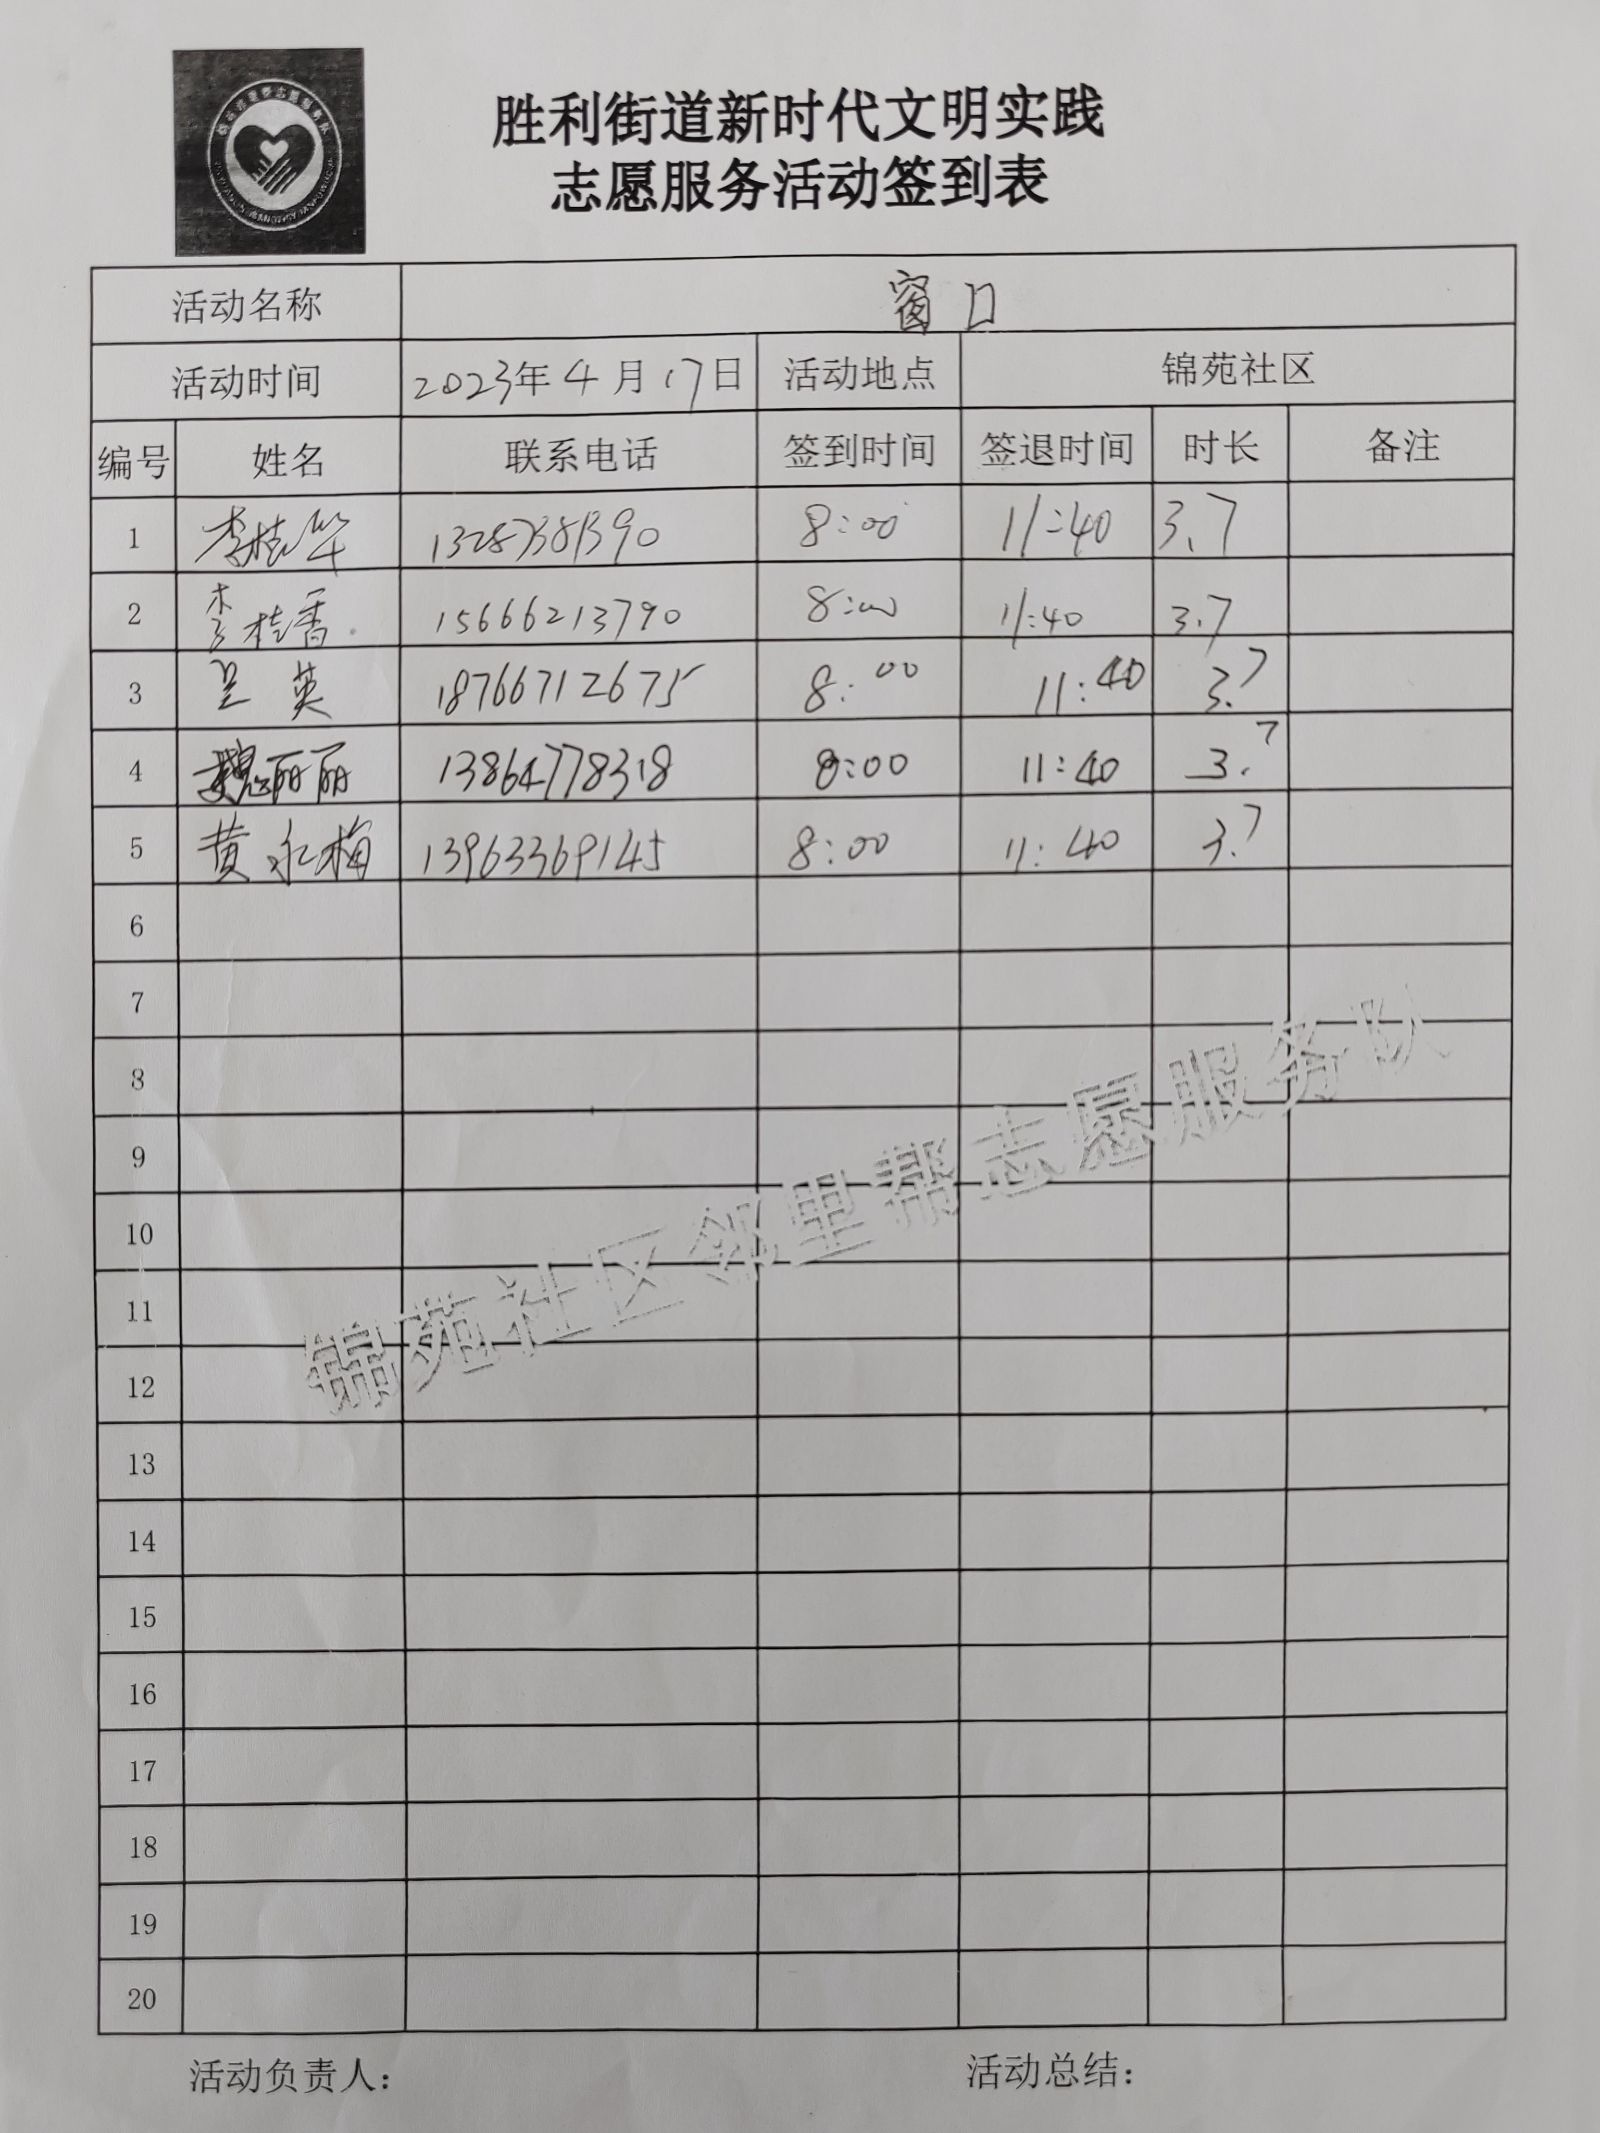 胜利街道新时代文明实践
志愿服务活动签到表
活动名称 窗口
活动时间 2023年4月17日 活动地点 锦苑社区
编号 姓名 联系电话 签到时间 签退时间 时长 备注
1 李桂华 8:00 11:40 3.7
2 李桂香 15666213790 8:00 11:40 3.7
3 英 18766712675 8:00 11:40 3.7
4 魏丽丽 13864778318 8:00 11:40 3.7
5 黄永梅 13963369145 8:00 11:40 3.7
6
7
8
9
10
11
12
13
14
15
16
17
18
19
20
锦苑社区邻里帮志愿服务队
活动负责人: 活动总结: